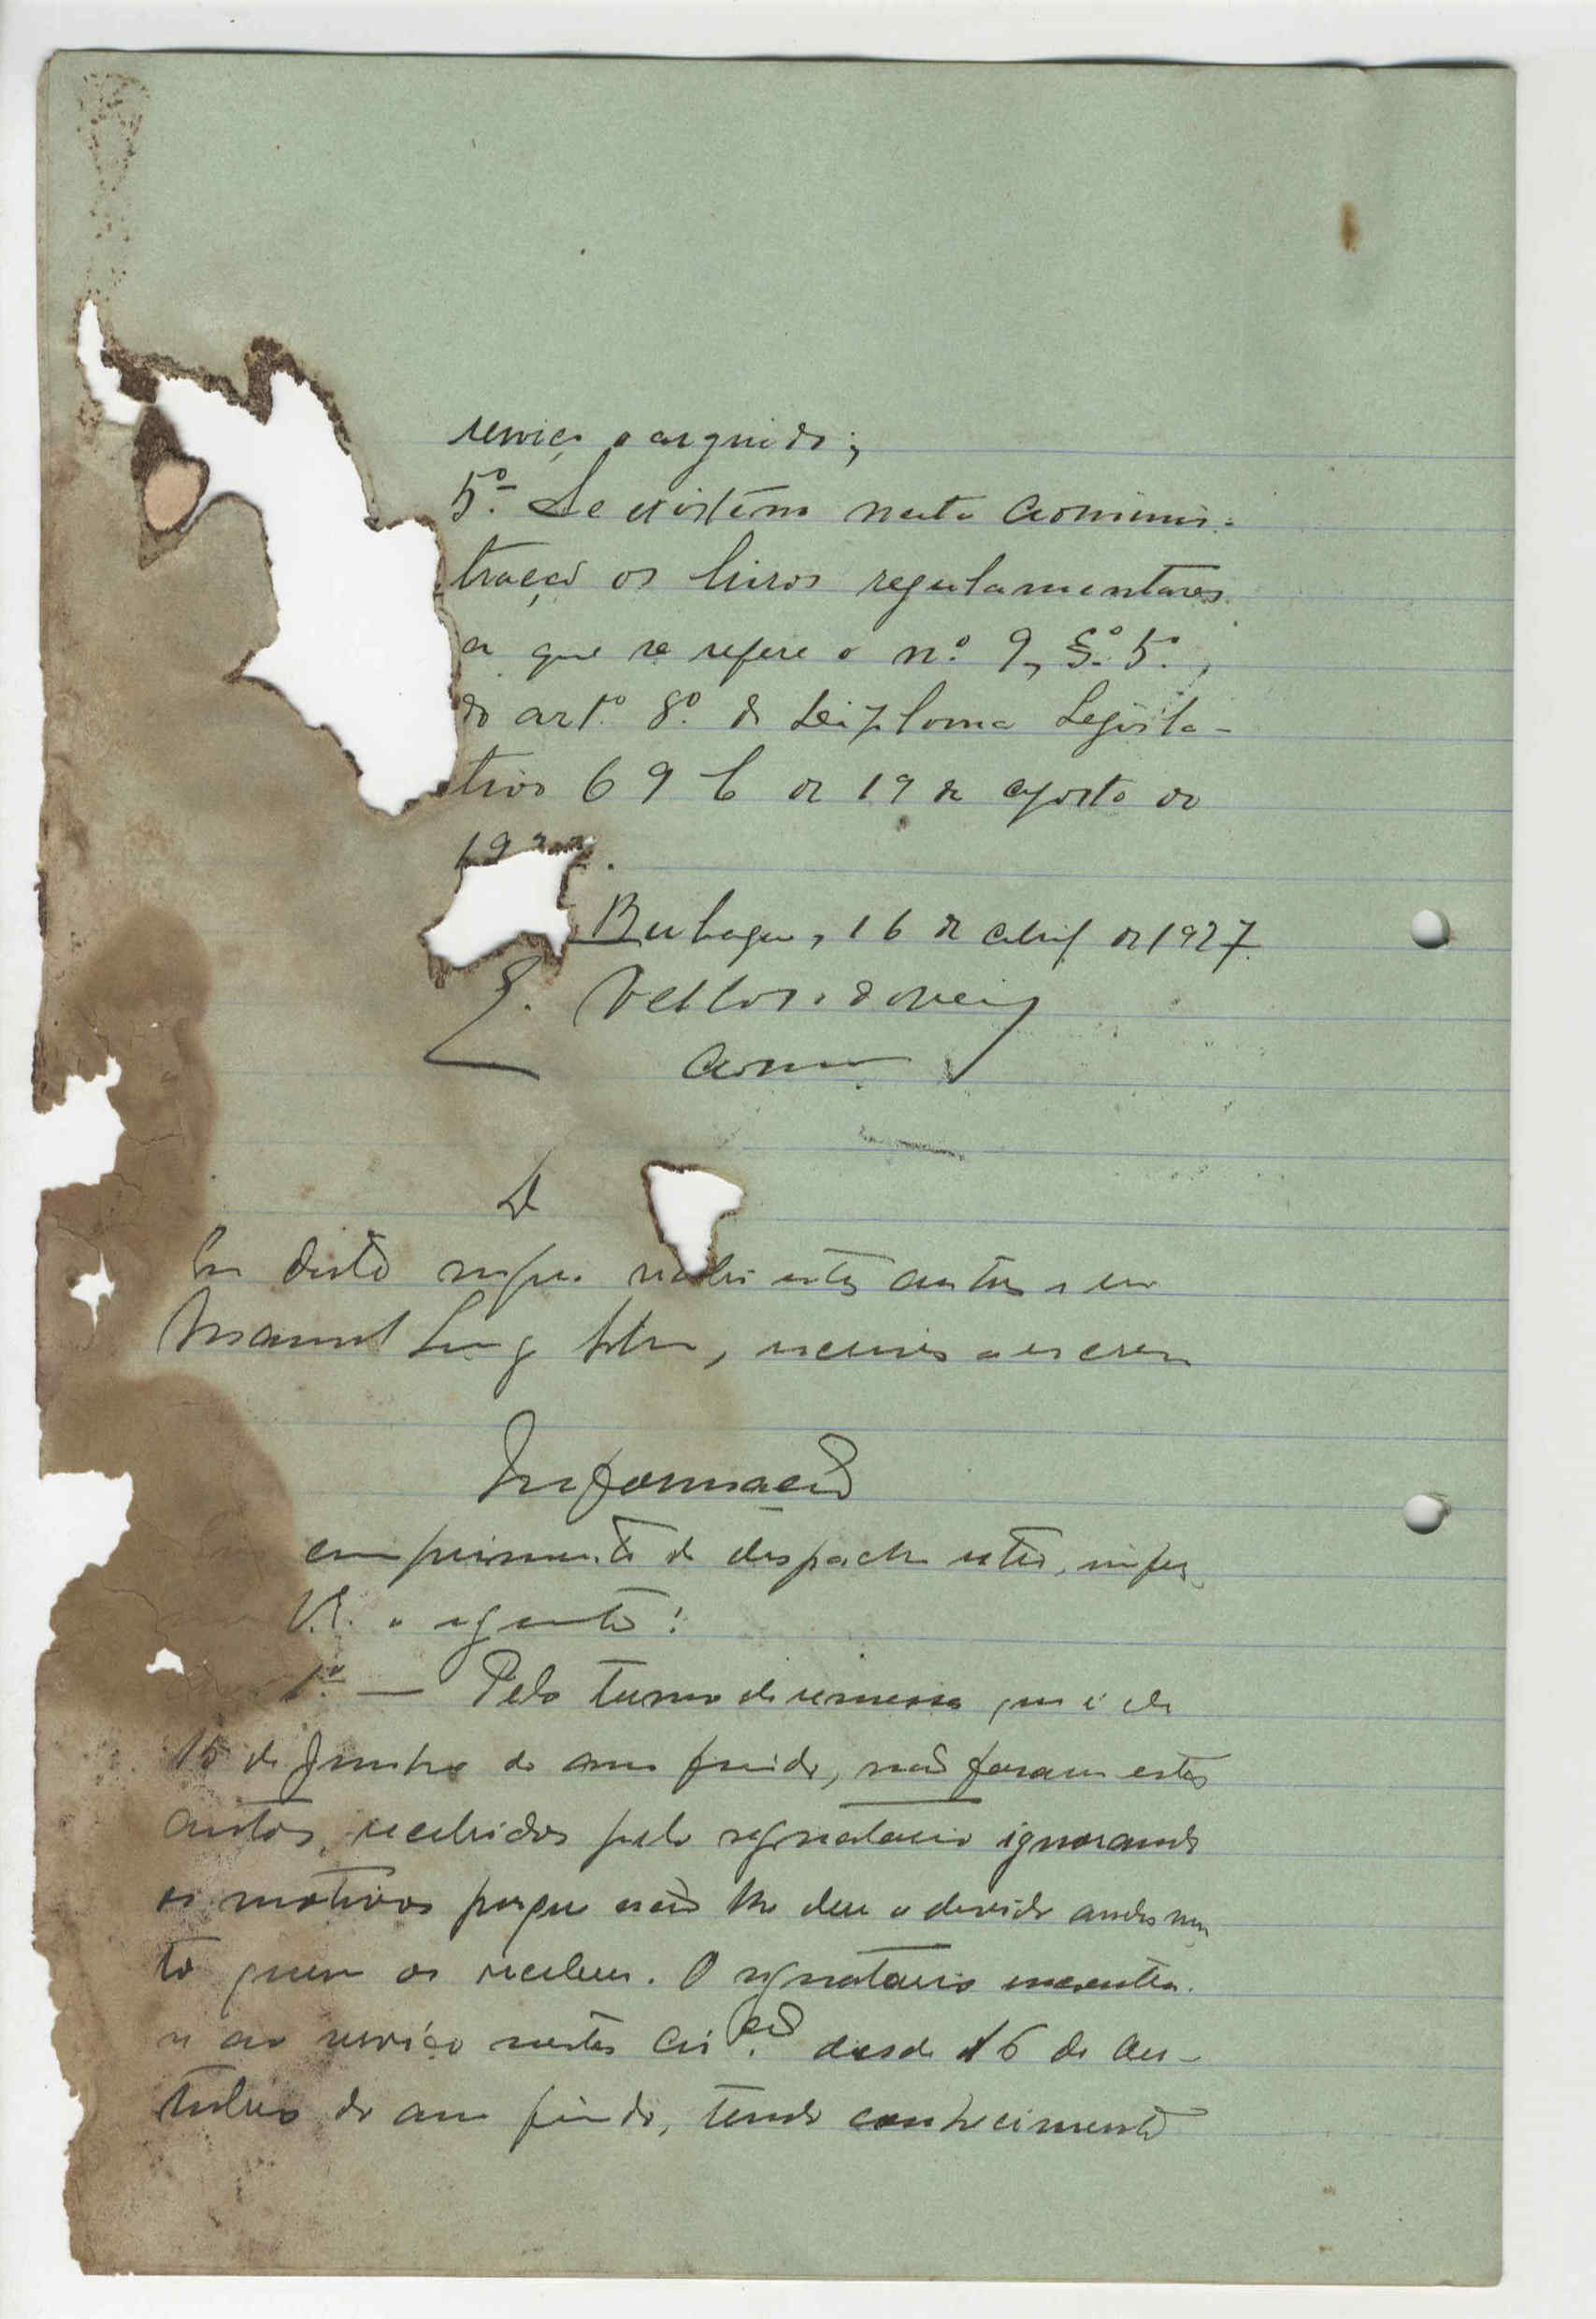 serviço o arguido;
5º Se existem nesta Adminis-
tração os livros regulamentares
a que se refere o nº 9, §º 5º,
do artº 8º do Diploma Legisla-
tivo 69 de 19 de agosto de
19
Bubaque, 16 de abril de 1927.
Adm
D
dito estes autos e eu
Manuel escrivão o escrevi
Informação
cumprimento do despacho infor
V. E. o seguinte:
1º — Pelo termo de remessa que é de
15 de Junho do ano findo, não foram estes
autos recebidos pelo signatario ignorando
os motivos porque não lhe deu o devido andamen
to quem os recebeu. O signatario encontra-
se ao serviço nesta desde 16 de Ou-
tubro do ano findo, tendo conhecimento